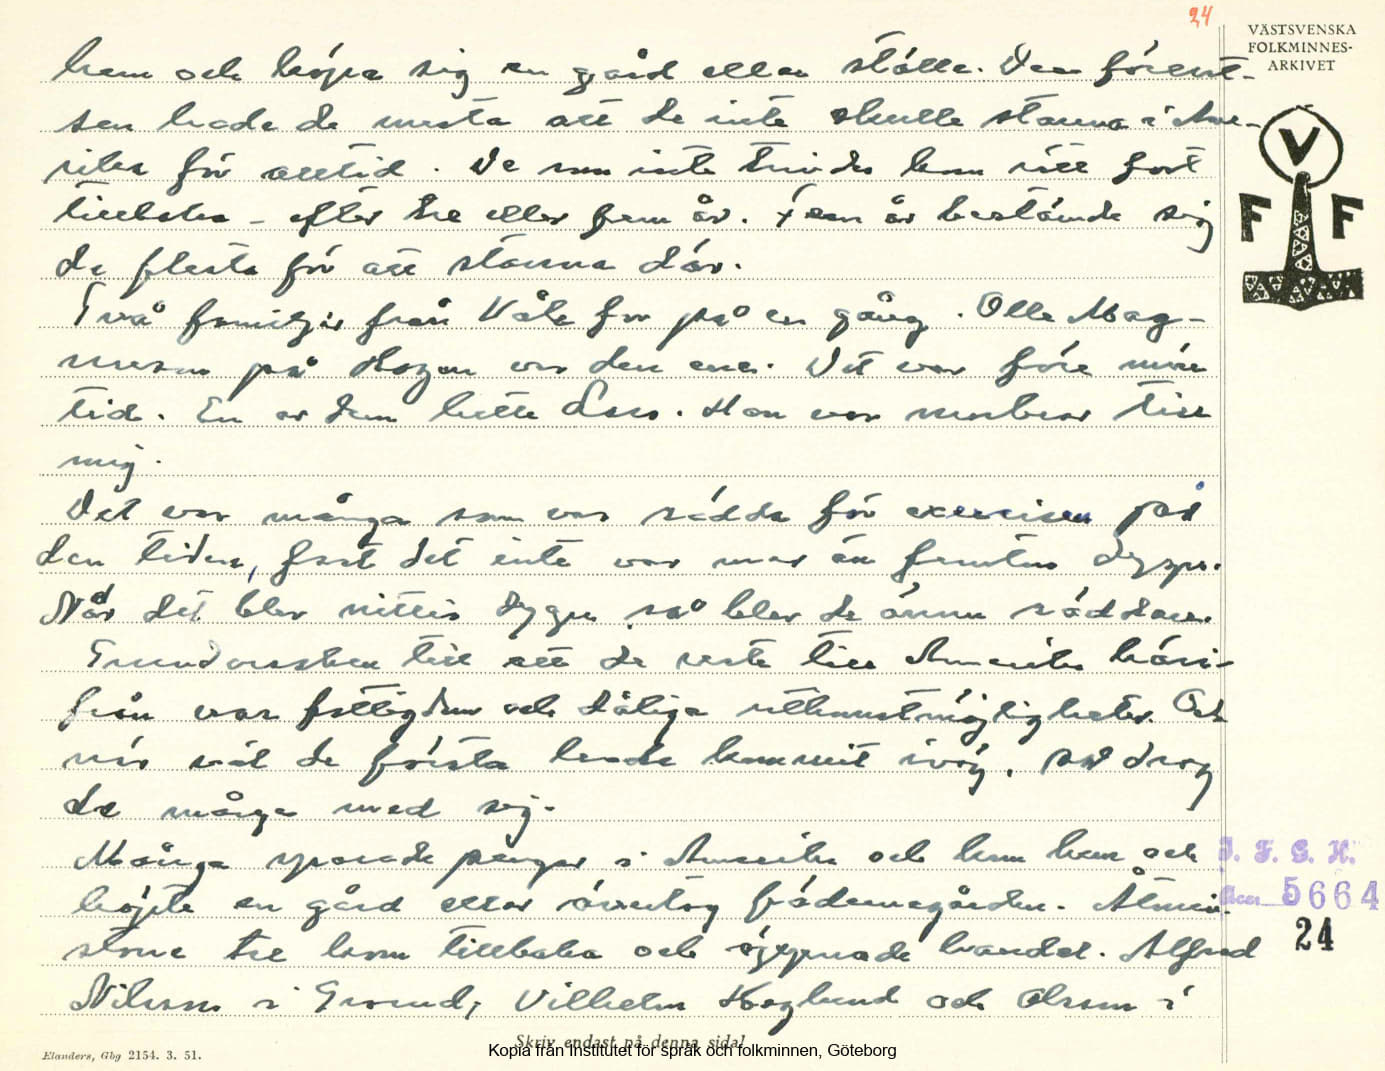 24
VÄSTSVENSKA
FOLKMINNES-
ARKIVET
V
F F
hem och köpa sig en gård eller ställe. Den förut-
sen hade de mesta att de inte skulle stanna i Ame-
rika för alltid. De som inte trivdes kom rätt fort
tillbaka - efter tre eller fem år. Fem år bestämde sig
de flesta för att stanna där.
Två familjer från Våle for på en gång. Olle Mag-
nusson på Hogen var den ene. Det var före min
tid. En av dem hette Lars. Han var morbror till
mig.
Det var många som var rädda för exercisen på
den tiden, fast det inte var mer än femton dygn.
När det blev nittio dygn så blev de ännu räddare.
Grundorsaken till att de reste till Amerika häri-
från var fattigdom och dåliga utkomstmöjligheter. Och
när väl de första hade kommit iväg, så drog
de många med sig.
Många sparade pengar i Amerika och kom hem och
köpte en gård eller övertog fädernegården. Åtmin-
stone tre kom tillbaka och öppnade handel. Alfred
Nilsson i Grund, Vilhelm Hoglund och Olsson i
I. F. G. H.
Acc. 5664
24
Skriv endast på denna sida!
Elanders, Gbg 2154. 3. 51.
Kopia från Institutet för språk och folkminnen, Göteborg